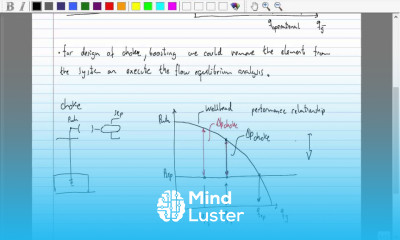 q operational
q g̅
• for design of choke, boosting we could remove the element from
the system an execute the flow equilibrium analysis.
choke
sep
Pwh
Pwh
wellhead performance relationship
Δp choke
Δp choke
Psep
Mind
Luster